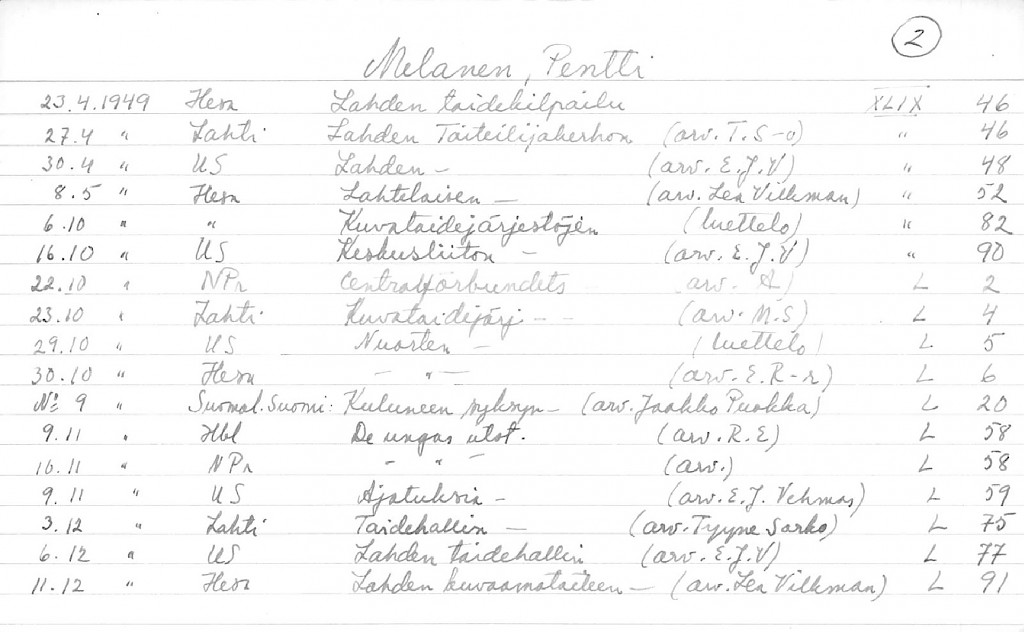 2
Melanen, Pentti
23.4.1949 Hesa Lahden taidekilpailu XLIX 46
27.4 " Lahti Lahden Taiteilijakerhon (arv. T.S-o) " 46
30.4 " US Lahden – (arv. E.J.V) " 48
8.5 " Hesa Lahtelaisen – (arv. Lea Vilkman) " 52
6.10 " " Kuvataidejärjestöjen (luettelo) " 82
16.10 " US Keskusliiton – (arv. E.J.V) " 90
22.10 " NPr Centralförbundets arv. A) L 2
23.10 " Lahti Kuvataidejärj – – (arv. M.S) L 4
29.10 " US Nuorten – (luettelo) L 5
30.10 " Hesa – " – (arv. E.R-r) L 6
No 9 " Suomal. Suomi: Kuluneen syksyn – (arv. Jaakko Puokka) L 20
9.11 " Hbl De ungas utst. (arv. R.E) L 58
16.11 " NPr – " – (arv.) L 58
9.11 " US Ajatuksia – (arv. E.J. Vehmas) L 59
3.12 " Lahti Taidehallin – (arv. Tyyne Sarko) L 75
6.12 " US Lahden taidehallin (arv. E.J.V) L 77
11.12 " Hesa Lahden kuvaamataiteen – (arv. Lea Vilkman) L 91